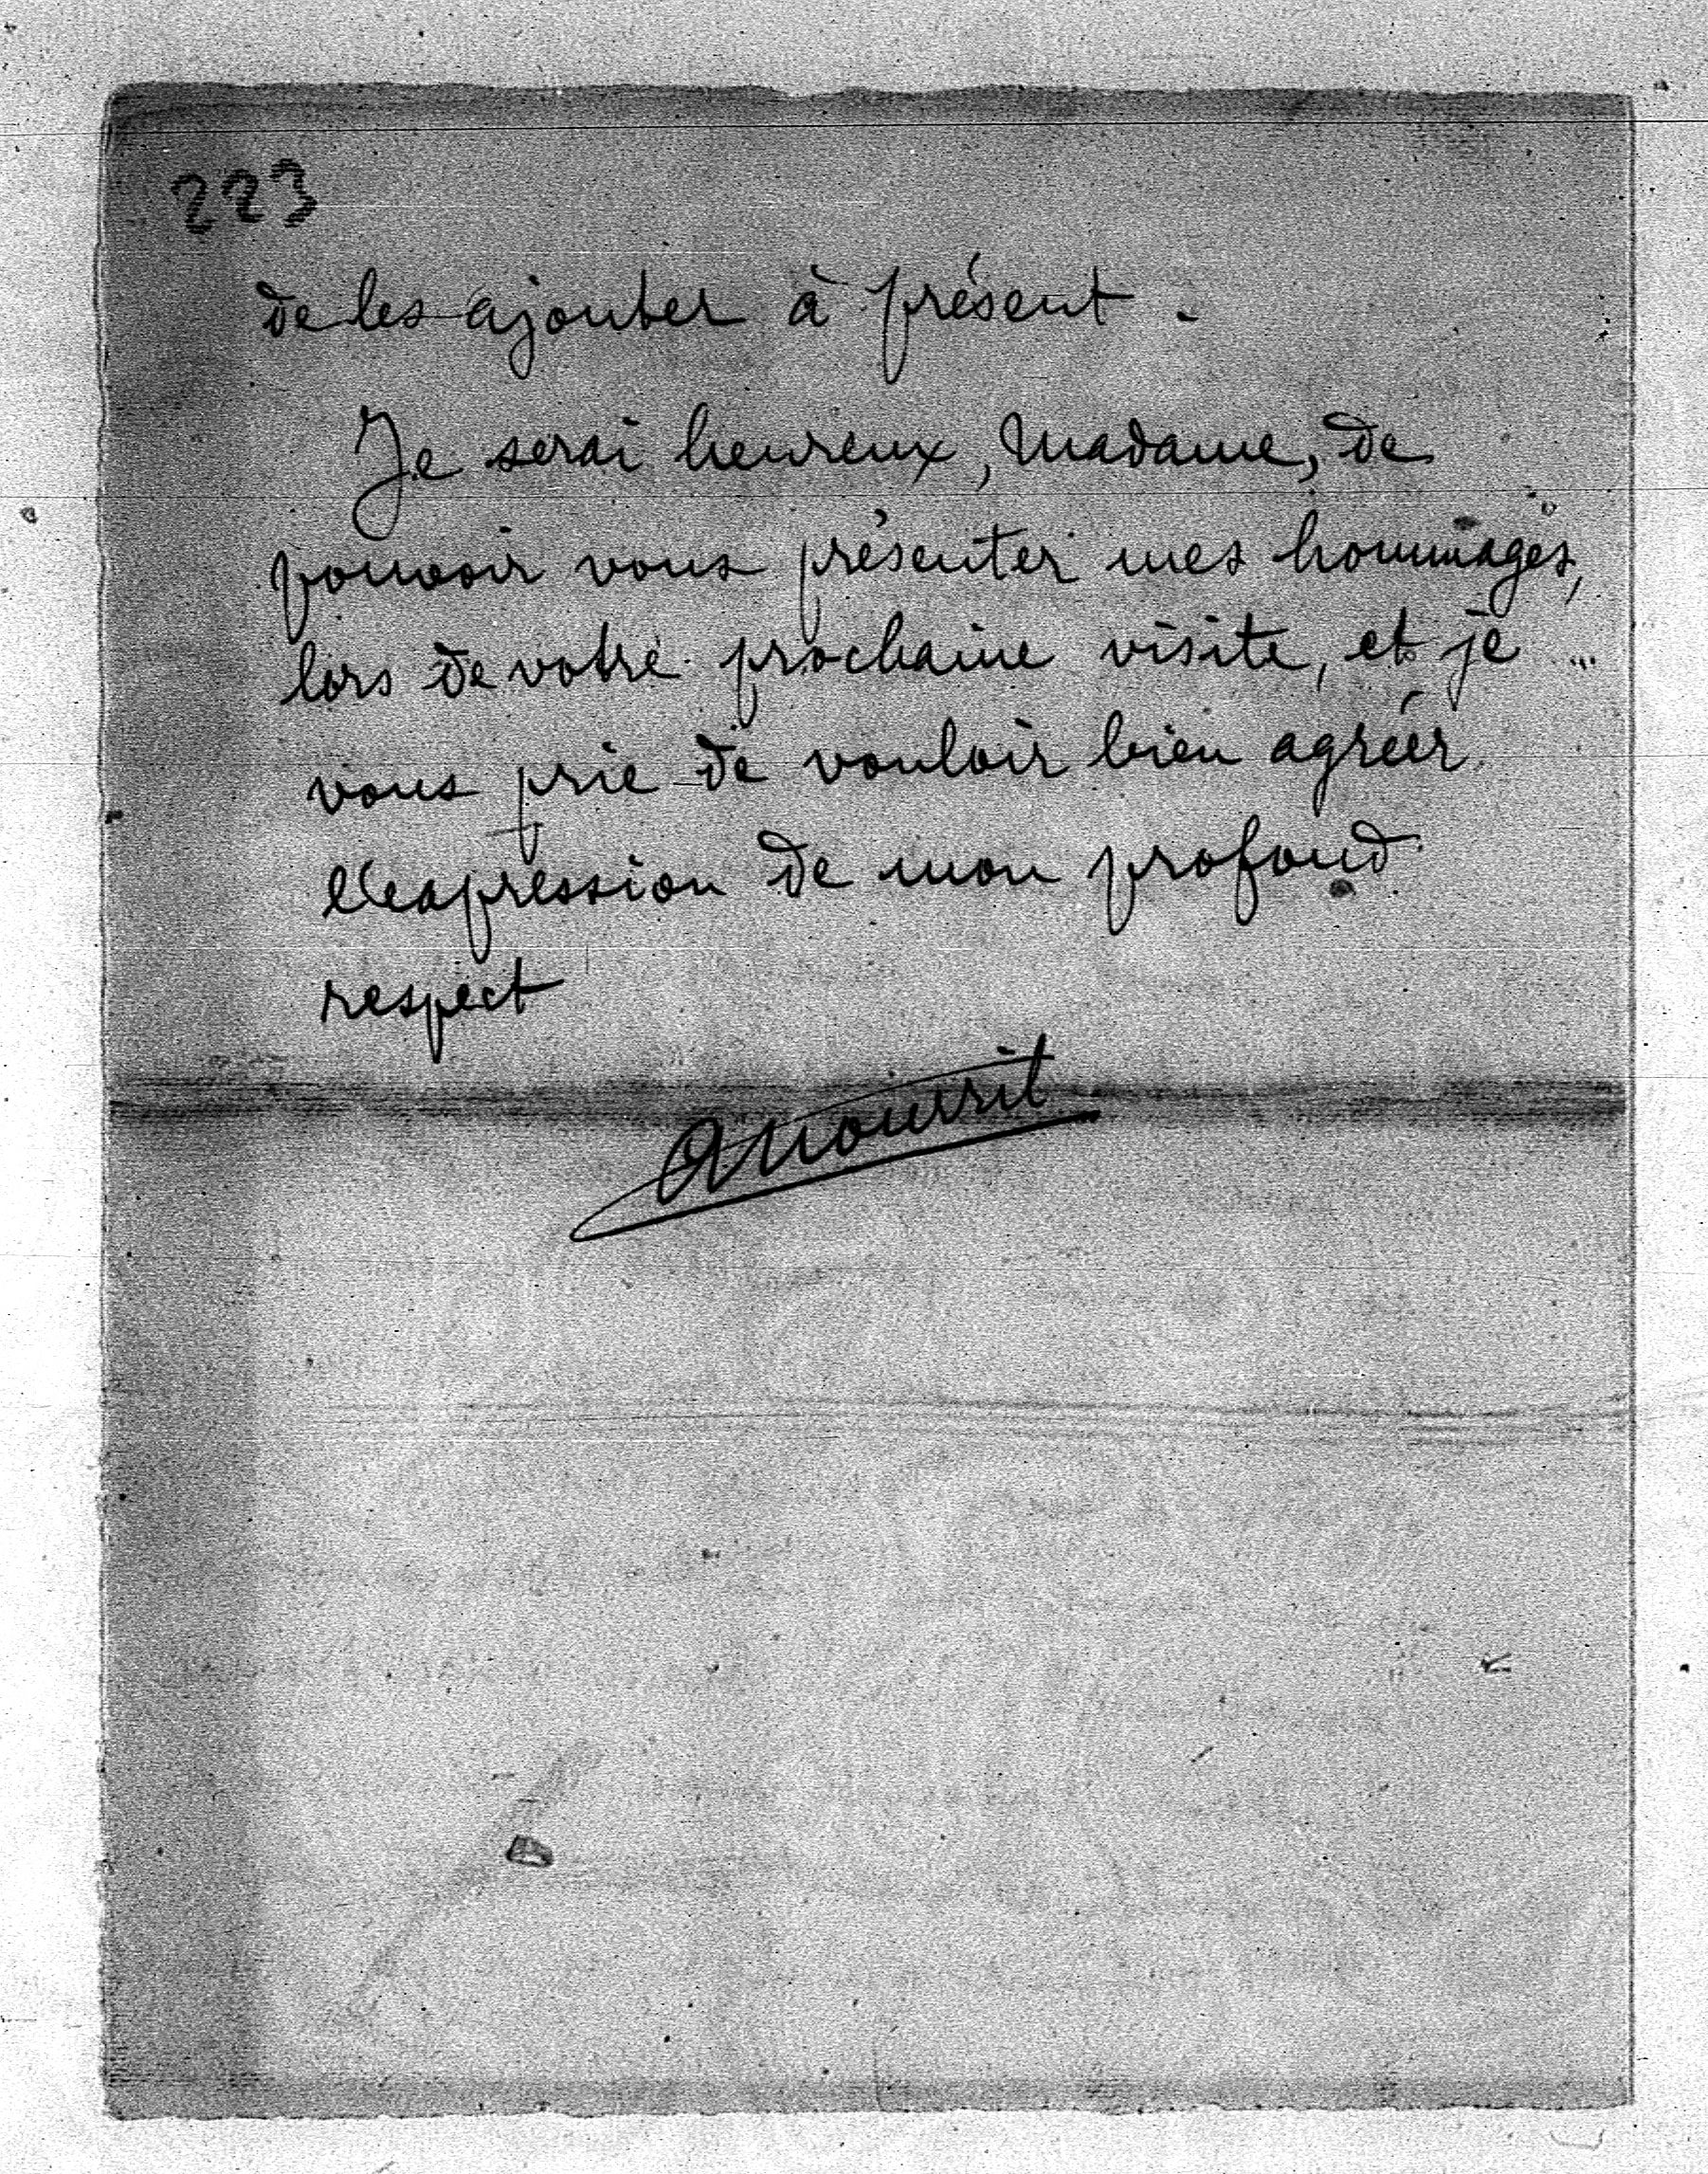 223
de les ajouter à présent.
Je serai heureux, Madame, de
pouvoir vous présenter mes hommages,
lors de votre prochaine visite, et je
vous prie de vouloir bien agréer
l'expression de mon profond
respect
A Nourrit